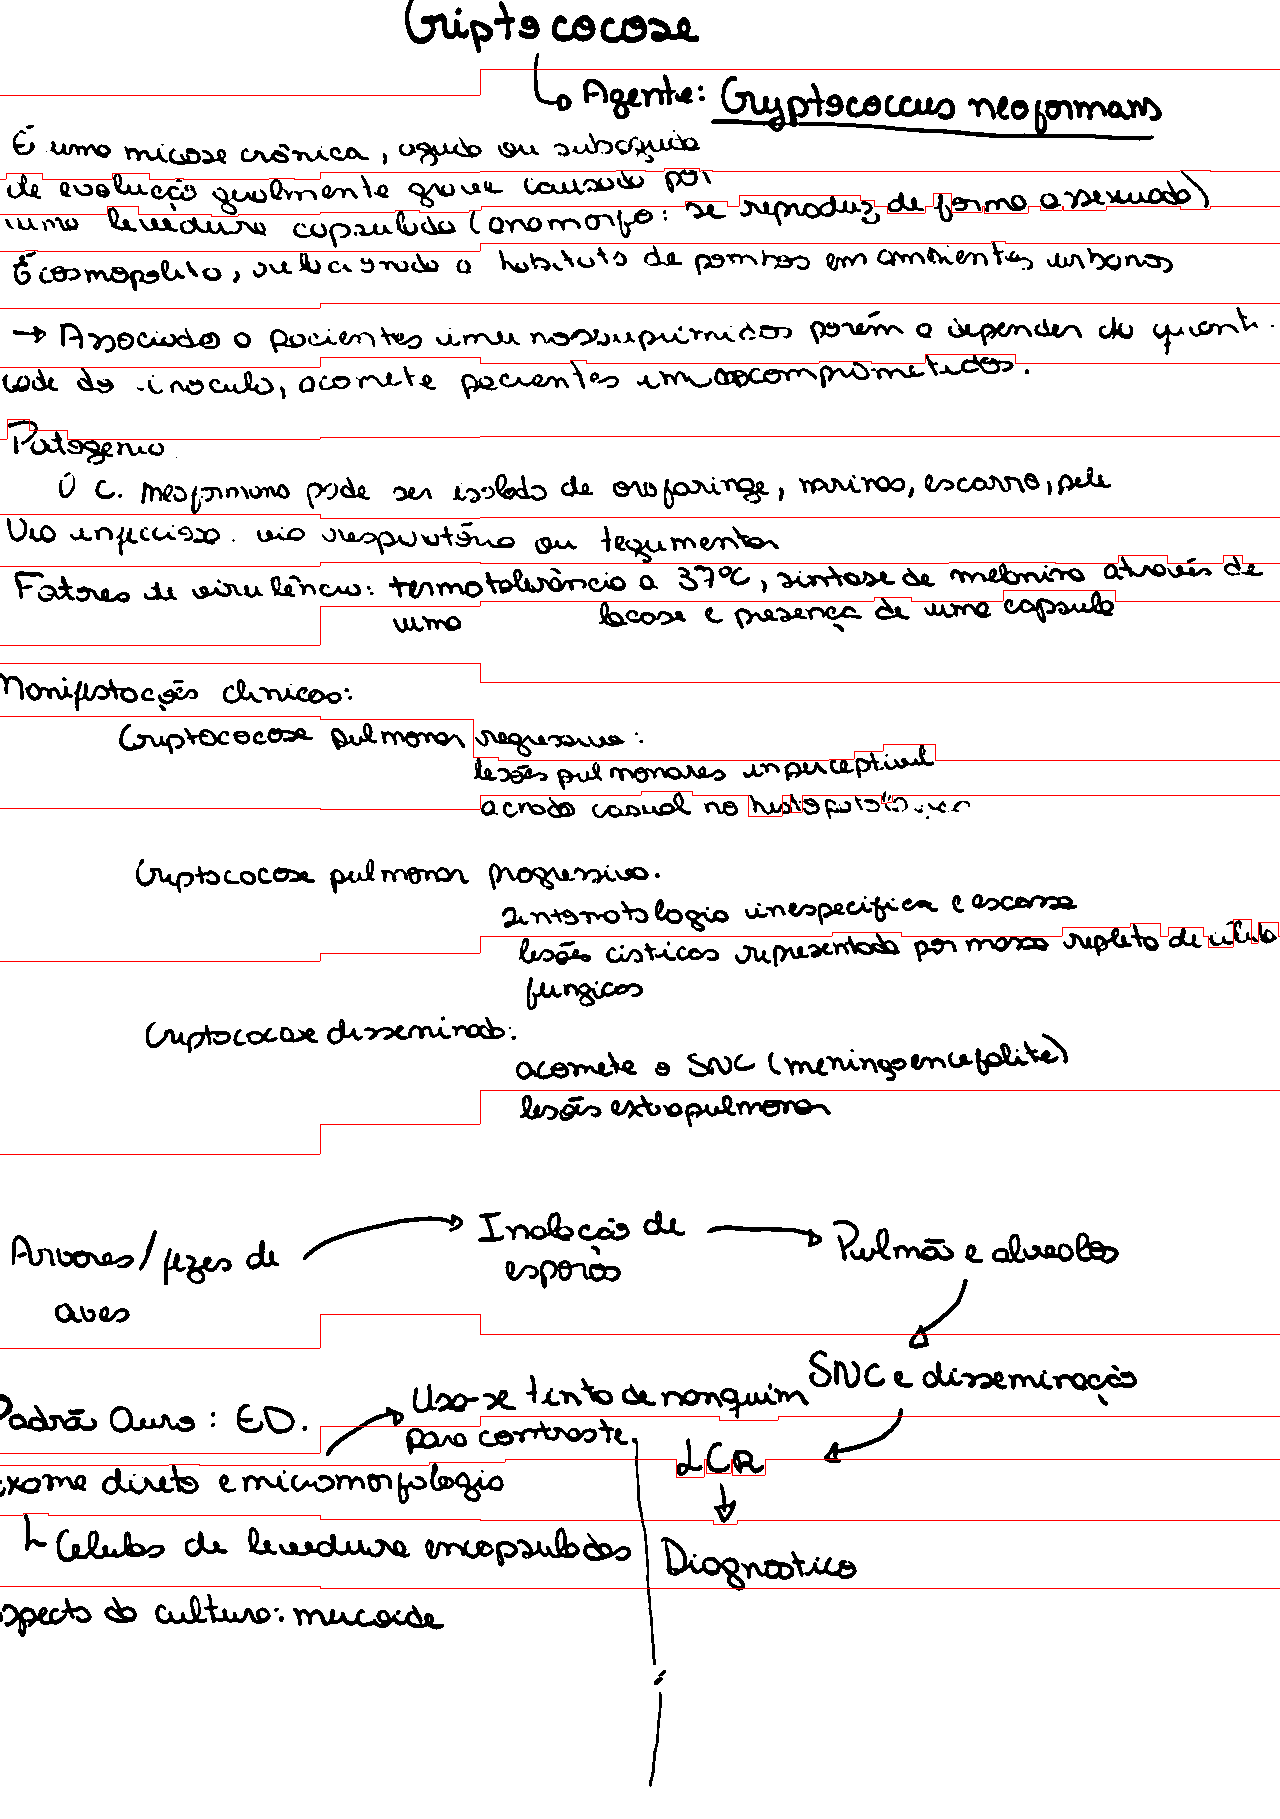 Criptococose
↳ Agente: Cryptococcus neoformans
É uma micose crônica, aguda ou subaguda
de evolução geralmente grave causada por
uma levedura capsulada (anamorfo: se reproduz de forma assexuada)
É cosmopolita, relacionado a habitats de pombos em ambientes urbanos
→ Associado a pacientes imunossuprimidos porém a depender da quanti-
dade do inoculo, acomete pacientes imunocomprometidos.
Patogenia
O C. neoformans pode ser isolado de orofaringe, narinas, escarro, pele
Via infecciosa: via respiratória ou tegumentar
Fatores de virulência: termotolerância a 37°C, sintase de melanina através de
uma lacase e presença de uma capsula
Manifestações clinicas:
Criptococose pulmonar regressiva:
lesões pulmonares imperceptivel
achado casual no histopatológico
Criptococose pulmonar progressiva.
sintomatologia inespecifica e escassa
lesões cisticas representada por massa repleta de célula
fungicas
Criptococose disseminada:
acomete o SNC (meningoencefalite)
lesões extrapulmonar
Arvores/fezes de aves → Inalação de esporos → Pulmão e alveolos
SNC e disseminação
Padrão Ouro: ED.
Usa-se tinta de nanquim
para contraste.
LCR
Exame direto e micromorfologia
↳ Celulas de levedura encapsuladas
Diagnostico
Aspecto da cultura: mucoide